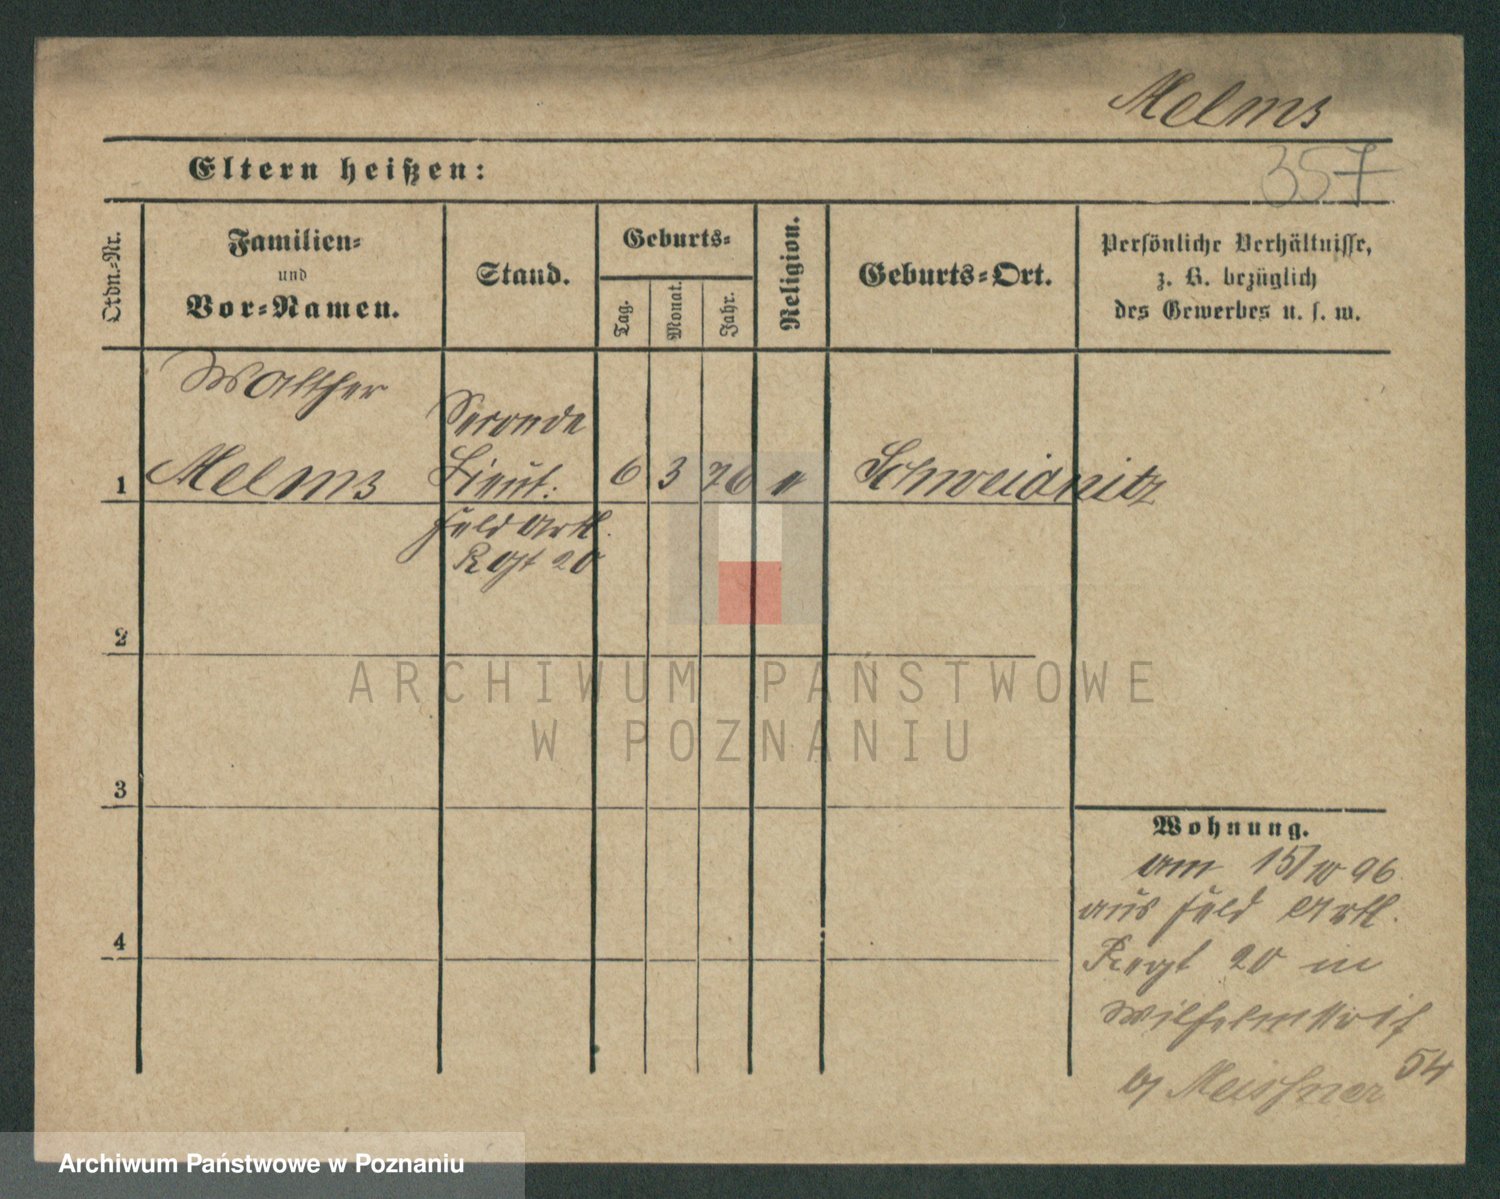 Melms
357
Eltern heißen:
Ordn.-Nr.
Familien-
und
Vor-Namen.
Stand.
Geburts-
Tag.
Monat.
Jahr.
Religion.
Geburts-Ort.
Persönliche Verhältnisse,
z. B. bezüglich
des Gewerbes u. s. w.
Walther
Seconde
1 Melms Lieut: 6 3 76 Schweidnitz
Feld Artl.
Rgt 20
2
ARCHIWUM PAŃSTWOWE
W POZNANIU
3
Wohnung.
am 15/10 96
aus Feld Artl.
4
Regt 20 in
54
Meissner
Archiwum Państwowe w Poznaniu